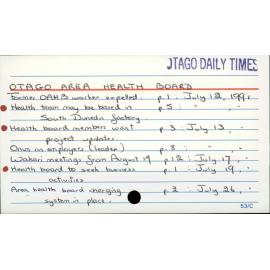 OTAGO DAILY TIMES
OTAGO AREA HEALTH BOARD
Former OAHB worker expelled. p.1 : July 12, 1991
Health team may be based in p.5 : " , "
South Dunedin factory.
Health board members want p.3 : July 13, "
project updates.
Onus on employers (leader) p.8 : " , "
Wakari meetings from August 19 p.12 : July 17, "
Health board to seek business p.1 : July 19, "
activities
Area health board charging p.2 : July 26, "
system in place.
53/C